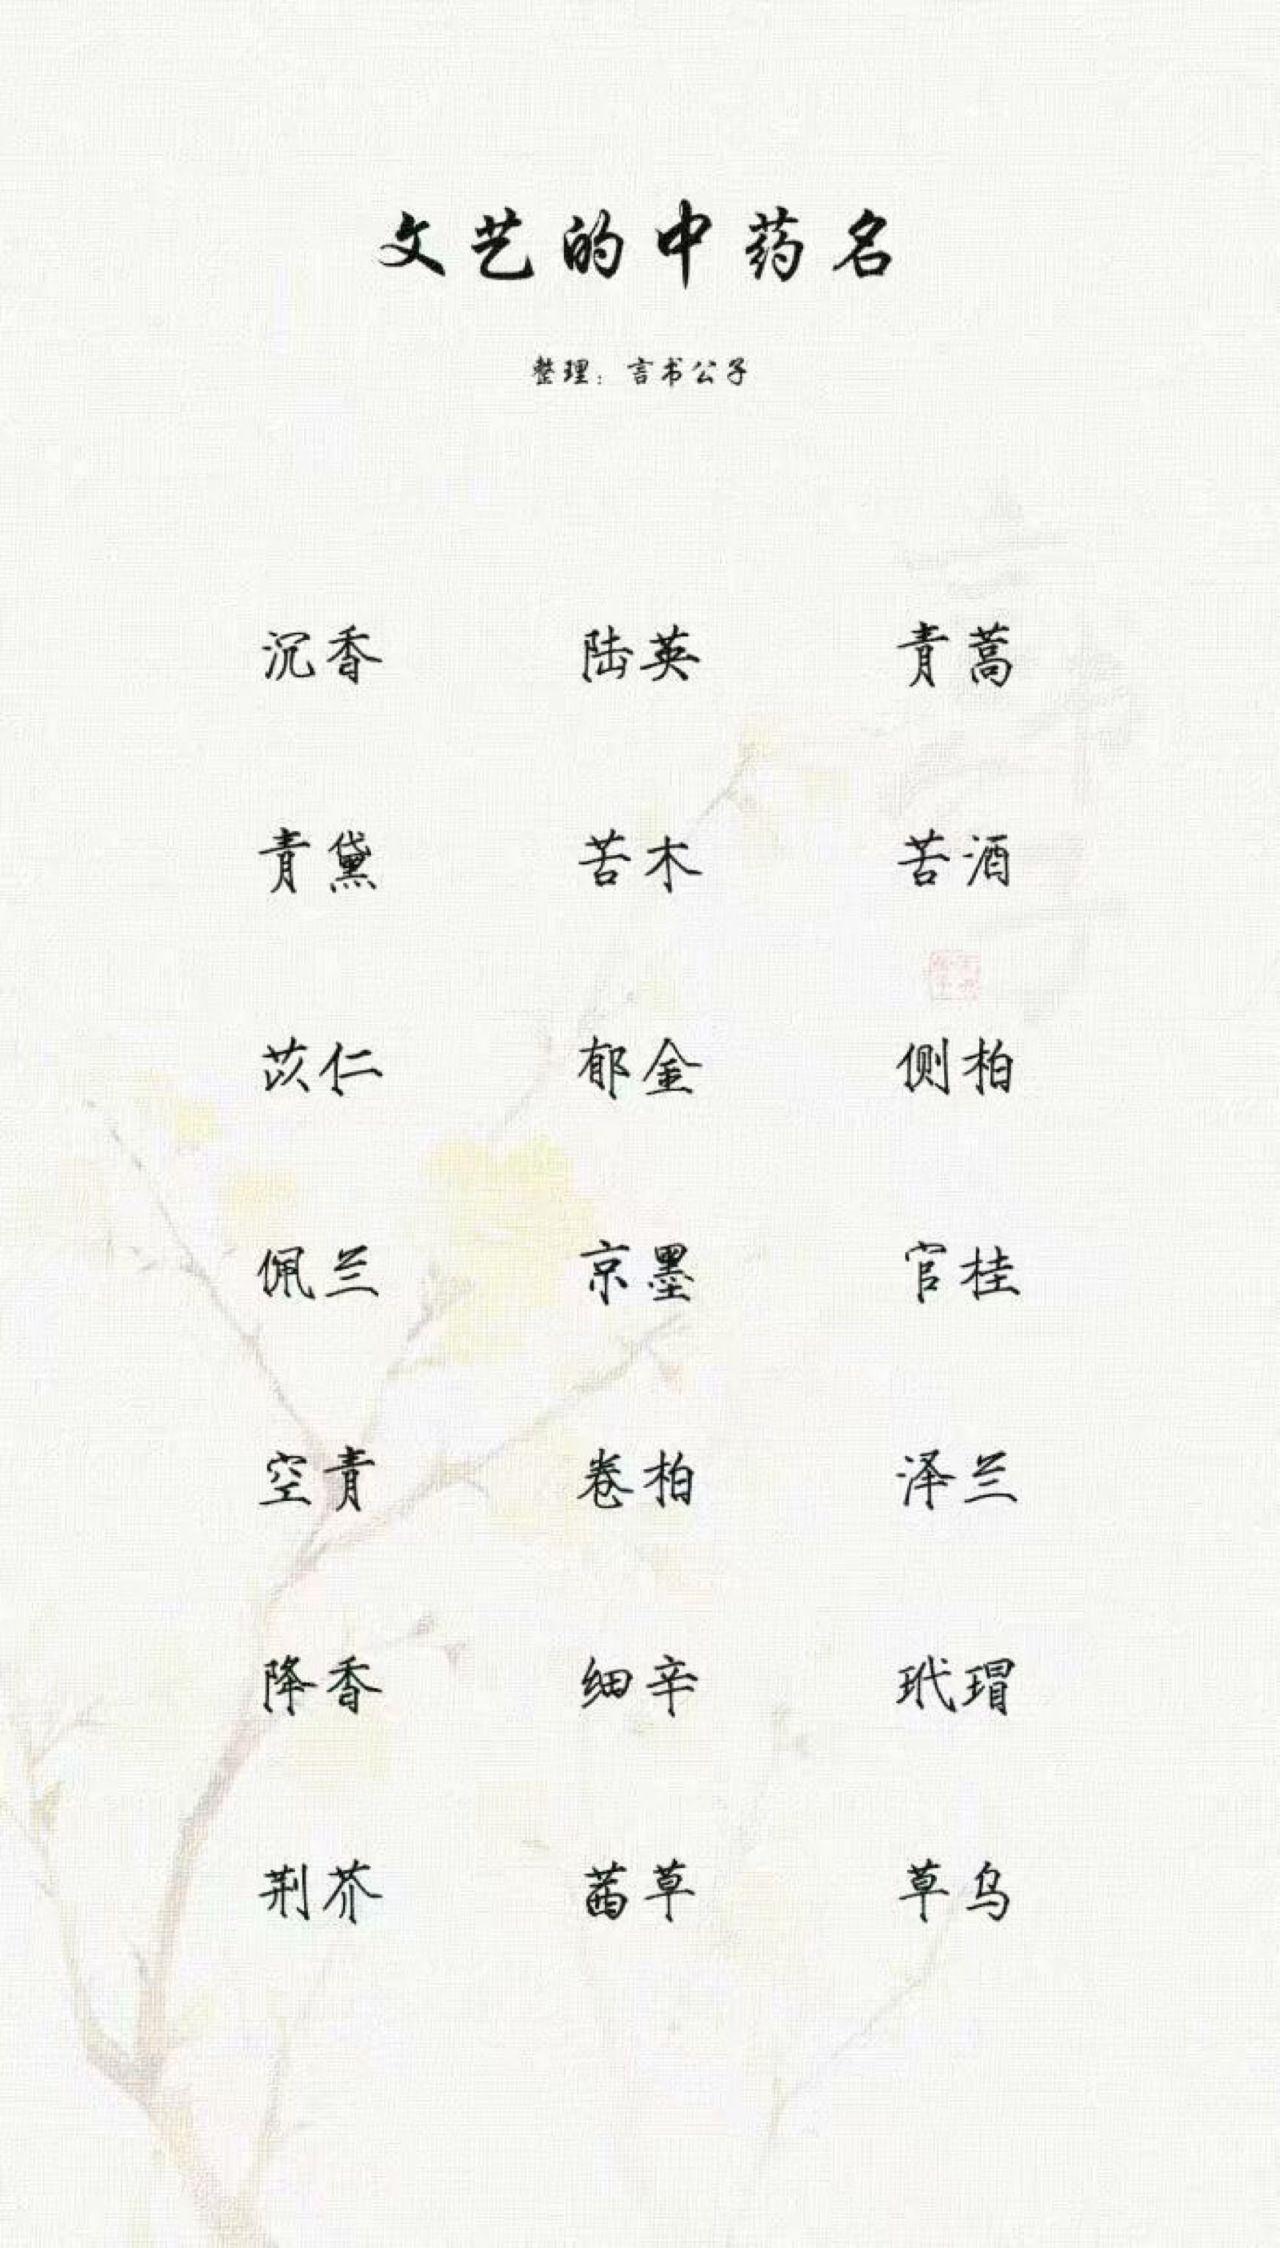 文艺的中药名
整理：言书公子
沉香 陆英 青蒿
青黛 苦木 苦酒
苡仁 郁金 侧柏
佩兰 京墨 官桂
空青 卷柏 泽兰
降香 细辛 玳瑁
荆芥 茜草 草乌